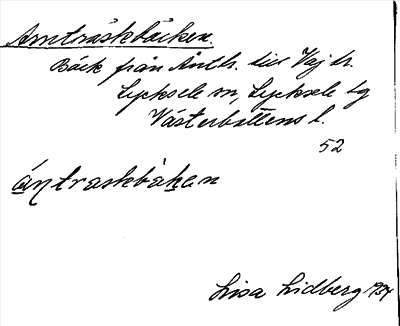 Åmträskbäcken.
Bäck från Åmtr. till Vajtr.
Lycksele sn, Lycksele lg
Västerbottens l.
52
ántraskbäkan
Lisa Lidberg 1934